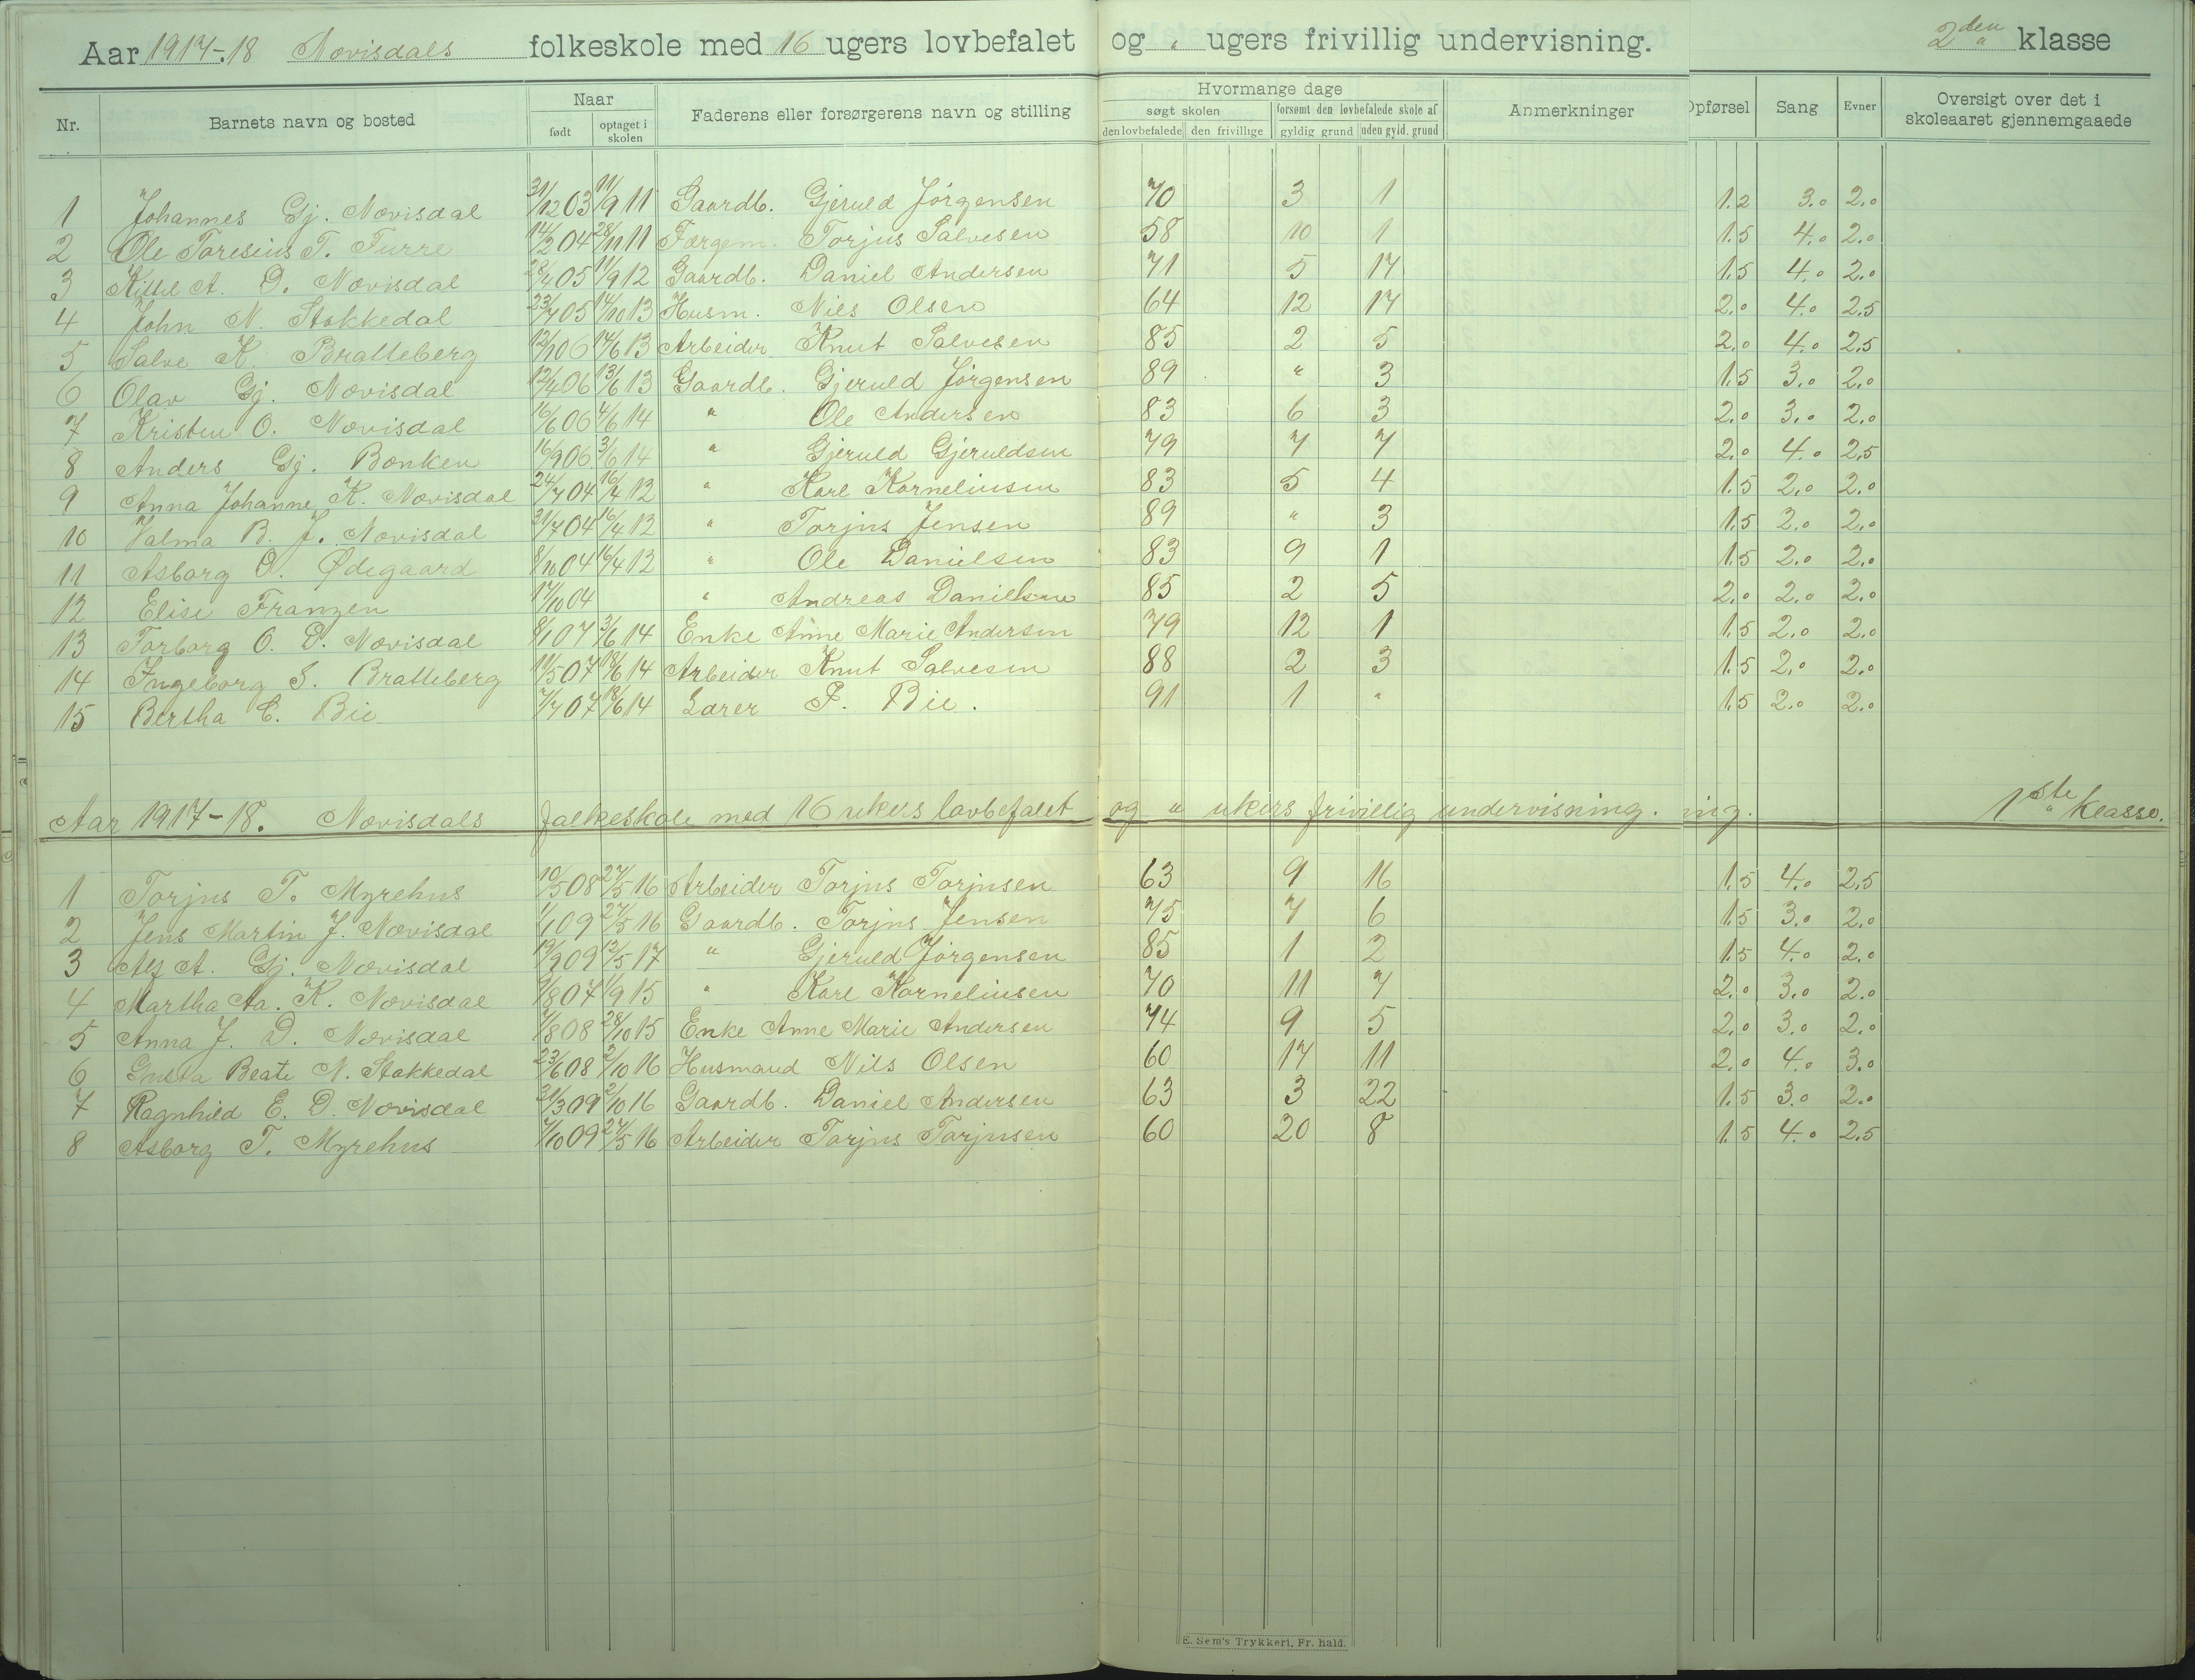 Aar 1917-18 Nævisdals folkeskole med 16 ugers lovbefalet og " ugers frivillig undervisning. 2den klasse
Nr. Barnets navn og bosted Naar født optaget i skolen Faderens eller forsørgerens navn og stilling Hvormange dage søgt skolen den lovbefalede den frivillige forsømt den lovbefalede skole af gyldig grund uden gyld. grund Anmerkninger Opførsel Sang Evner Oversigt over det i skoleaaret gjennemgaaede
1 Johannes Gj. Nævisdal 31/12 03 11/9 11 Gaardb. Gjeruld Jørgensen 70 3 1 1.2 3.0 2.0
2 Ole Toresius T. Furre 14/2 04 28/11 11 Færgem. Torjus Salvesen 58 10 1 1.5 4.0 2.0
3 Kittel A. D. Nævisdal 28/4 05 11/9 12 Gaardb. Daniel Andersen 71 5 17 1.5 4.0 2.0
4 John N. Stokkedal 23/7 05 14/10 13 Husm. Nils Olsen 64 12 17 2.0 4.0 2.5
5 Salve K. Bratteberg 12/1 06 14/6 13 Arbeider Knut Salvesen 85 2 5 2.0 4.0 2.5
6 Olav Gj. Nævisdal 12/4 06 13/6 13 Gaardb. Gjeruld Jørgensen 89 " 3 1.5 3.0 2.0
7 Kristen O. Nævisdal 16/6 06 4/6 14 " Ole Andersen 83 6 3 2.0 3.0 2.0
8 Anders Gj. Bønken 16/9 06 3/6 14 " Gjeruld Gjeruldsen 79 7 7 2.0 4.0 2.5
9 Anna Johanne K. Nævisdal 24/7 04 16/4 12 " Karl Korneliusen 83 5 4 1.5 2.0 2.0
10 Valma B. J. Nævisdal 31/7 04 16/4 12 " Torjus Jensen 89 " 3 1.5 2.0 2.0
11 Asborg O. Ødegaard 8/10 04 16/4 12 " Ole Danielsen 83 9 1 1.5 2.0 2.0
12 Elise Franzen 17/10 04 " Andreas Danielsen 85 2 5 2.0 2.0 2.0
13 Torborg O. D. Nævisdal 8/1 07 3/6 14 Enke Anne Marie Andersen 79 12 1 1.5 2.0 2.0
14 Ingeborg S. Bratteberg 11/5 07 18/6 14 Arbeider Knut Salvesen 88 2 3 1.5 2.0 2.0
15 Bertha C. Bie 7/7 07 18/6 14 Lærer F. Bie. 91 1 " 1.5 2.0 2.0
Aar 1917-18. Nævisdals folkeskole med 16 ukers lovbefalet og " ukers frivillig undervisning. ing. 1ste klasse.
1 Torjus T. Myrehus 10/5 08 27/5 16 Arbeider Torjus Torjusen 63 9 16 1.5 4.0 2.5
2 Jens Martin J. Nævisdal 1/1 09 27/5 16 Gaardb. Torjus Jensen 75 7 6 1.5 3.0 2.0
3 Alf A. Gj. Nævisdal 19/9 09 12/5 17 " Gjeruld Jørgensen 85 1 2 1.5 4.0 2.0
4 Martha Aa. K. Nævisdal 9/8 07 1/9 15 " Karl Korneliusen 70 11 7 2.0 3.0 2.0
5 Anna J. D. Nævisdal 7/8 08 28/10 15 Enke Anne Marie Andersen 74 9 5 2.0 3.0 2.0
6 Gusta Beate N. Stokkedal 23/6 08 2/10 16 Husmand Nils Olsen 60 17 11 2.0 4.0 3.0
7 Ragnhild E. D. Nævisdal 21/3 09 2/10 16 Gaardb. Daniel Andersen 63 3 22 1.5 3.0 2.0
8 Asborg T. Myrehus 7/10 09 27/5 16 Arbeider Torjus Torjusen 60 20 8 1.5 4.0 2.5
E. Sem's Trykkeri, Fr. hald.